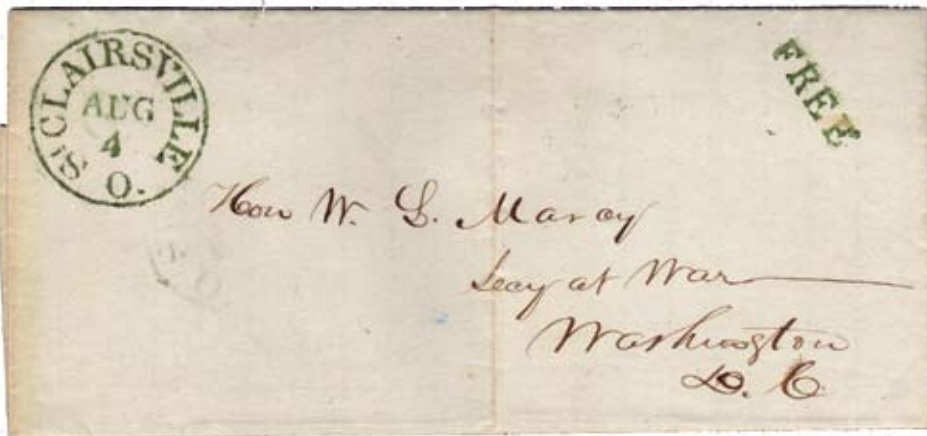 St CLAIRSVILLE
AUG
4
O.
FREE
Hon W. L. Marcy
Secy at War
Washington
D. C.